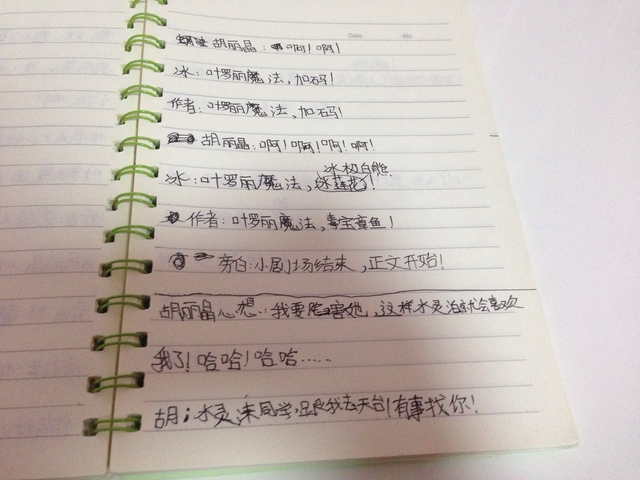 胡丽晶:啊!啊!
冰:叶罗丽魔法,加码!
作者:叶罗丽魔法,加码!
胡丽晶:啊!啊!啊!啊!
冰极白熊
冰:叶罗丽魔法,冰莲花!
作者:叶罗丽魔法,毒宝章鱼!
旁白:小剧场结束,正文开始!
胡丽晶心想:我要陷害她,这样水灵泊就会喜欢
我了!哈哈!哈哈……
胡:水灵沫同学,跟我去天台!有事找你!